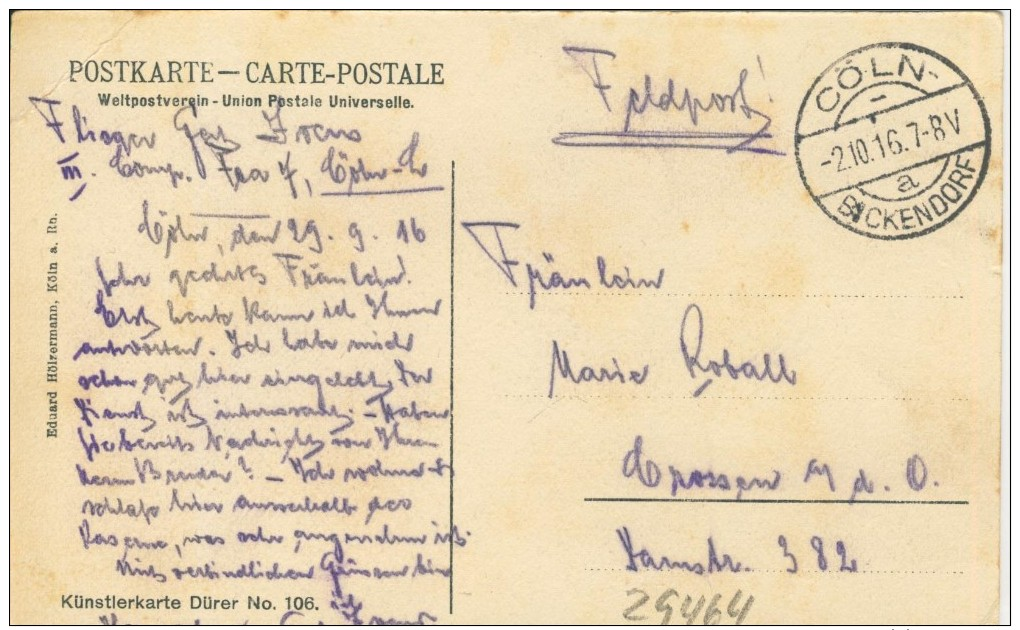 POSTKARTE — CARTE-POSTALE
Weltpostverein - Union Postale Universelle.
Flieger
III. Comp. Fea 7, Cöln-L
Cöln, den 29. 9. 16
Sehr geehrtes Fräulein!
Erst heute kann ich Ihnen
antworten. Ich habe mich
schon gut hier eingelebt, der
Dienst ist interessant. – Haben
Sie bereits Nachricht von Ihrem
Herrn Bruder? – Ich wohne u.
schlafe hier ausserhalb der
Kaserne, was sehr angenehm ist.
Mit verbindlichen Grüssen bin
ich
Künstlerkarte Dürer No. 106.
Eduard Hölzermann, Köln a. Rh.
Feldpost!
CÖLN-
-2.10.16.7-8V
a
BICKENDORF
Fräulein
Marie
Crossen a/ d. O.
382
29464